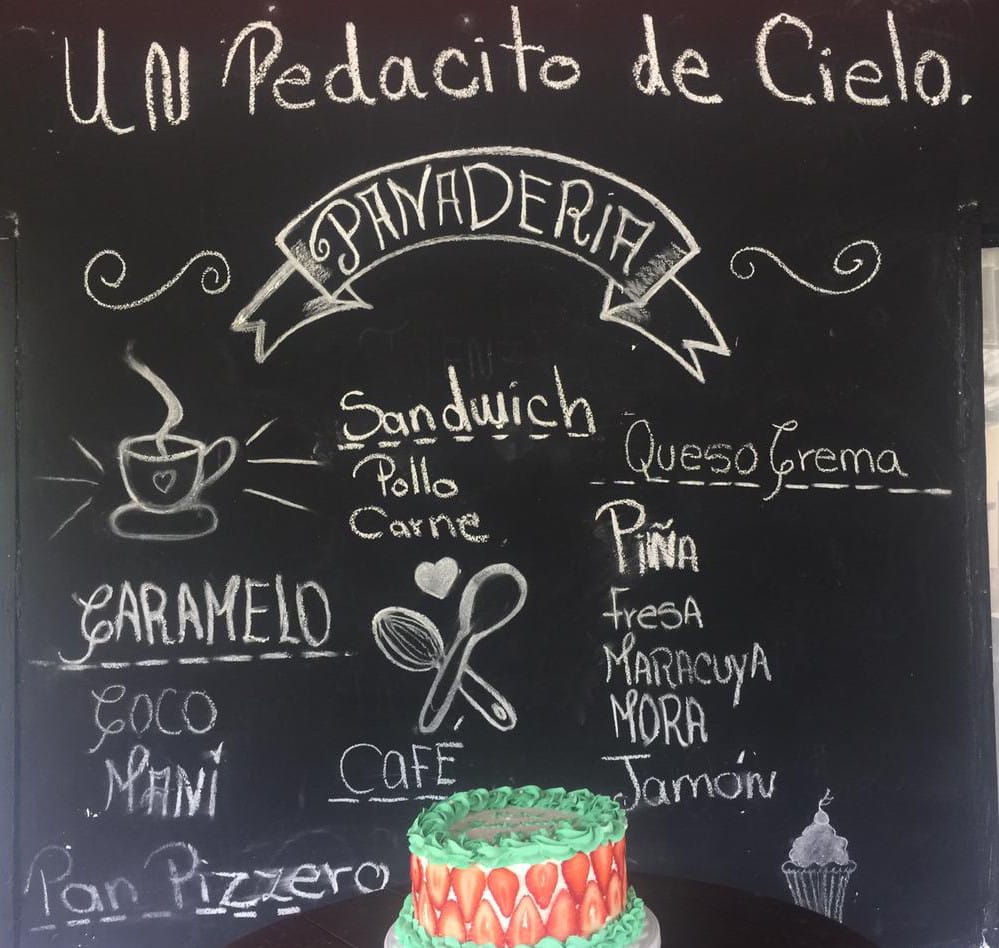 UN Pedacito de Cielo.
PANADERIA
Sandwich
Pollo
Carne
Queso Crema
PiÑA
fresA
MARACUyA
MORA
Jamón
CARAMELO
COCO
MANÍ
CAFÉ
Pan Pizzero